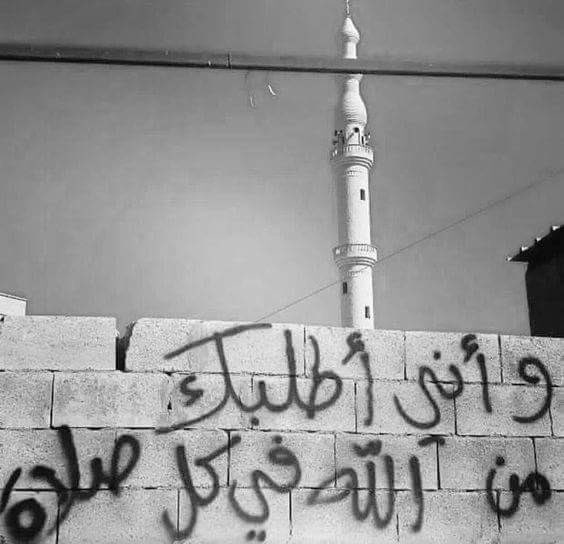 وأنى أطلبك
من الله في كل صلاة